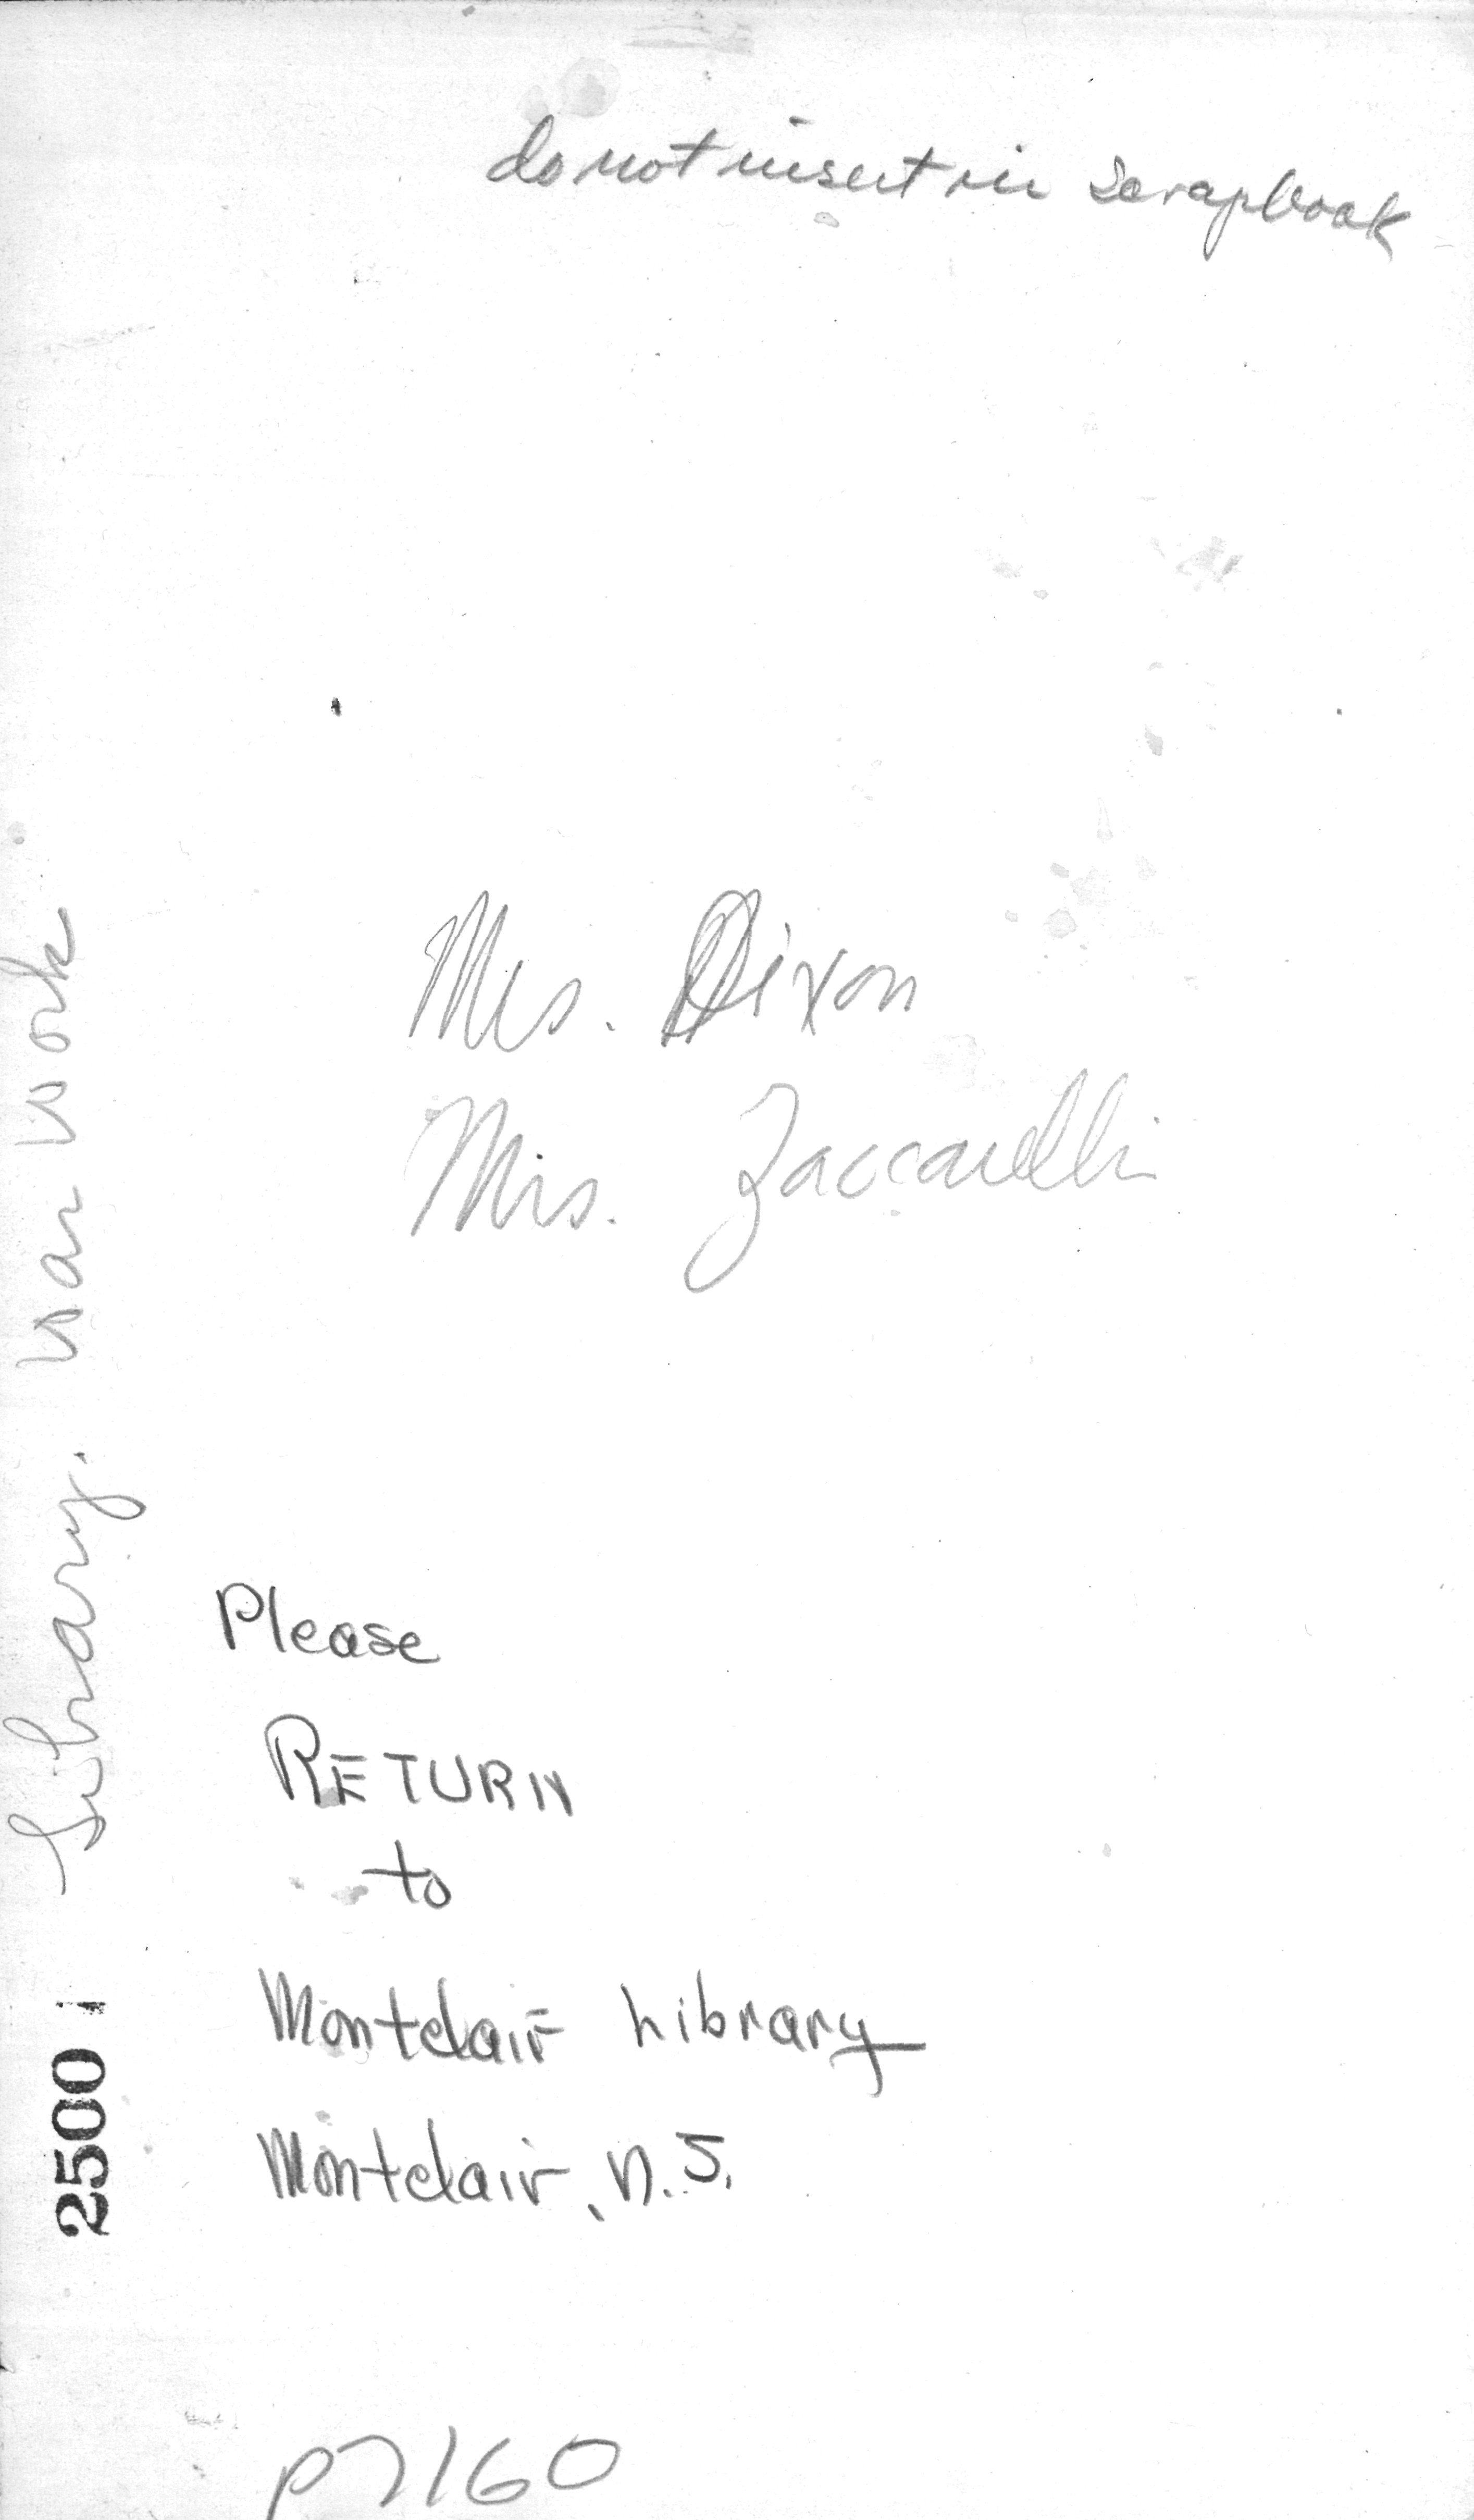 do not insert in scrapbook
Mrs. Dixon
Mrs. Zaccarelli
Library. War Work
Please
RETURN
to
Montclair Library
Montclair, N.J.
2500
P7160